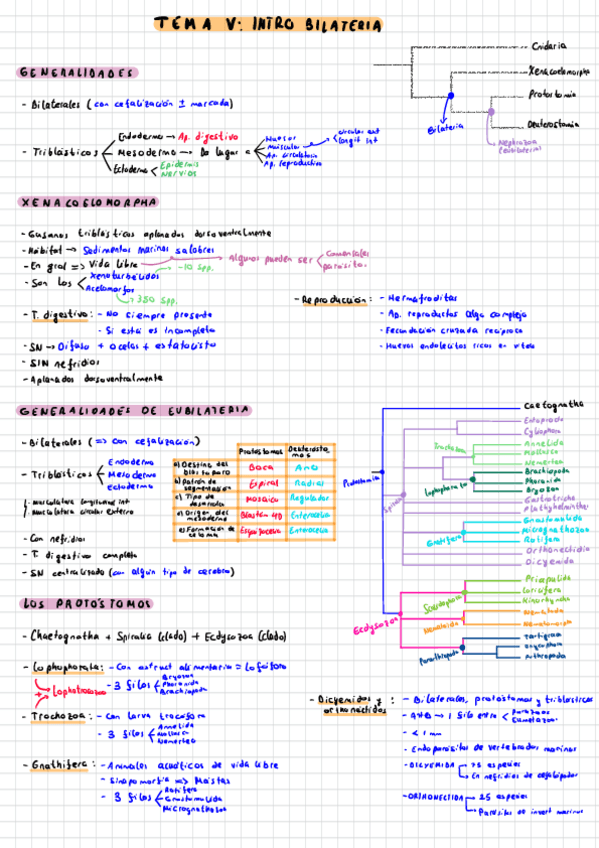 TEMA V: INTRO BILATERIA
GENERALIDADES
- Bilaterales (con cefalización ± marcada)
- Triblásticos
Endodermo → Ap. digestivo
Mesodermo → Da lugar a
Huesos
Muscular
circular ext
longit int
Ap. circulatorio
Ap. reproductivo
Ectodermo
Epidermis
Nervios
Cnidaria
Xenacoelomorpha
Protostomia
Deuterostomia
Bilateria
Nephrozoa
(eubilateria)
XENACOELOMORPHA
- Gusanos triblásticos aplanados dorsoventralmente
- Hábitat → Sedimentos marinos salobres
- En gral => Vida libre
Algunos pueden ser
Comensales
parásito.
- Son los
Xenoturbélidos
~10 spp.
Acelomorfos
350 spp.
- T. digestivo: - No siempre presente
- Si está es incompleto
- SN → Difuso + ocelos + estatocisto
- SIN nefridios
- Aplanados dorsoventralmente
- Reproducción: - Hermafroditas
- Ap. reproductor algo complejo
- Fecundación cruzada recíproca
- Huevos endolecitos ricos en vitelo
GENERALIDADES DE EUBILATERIA
- Bilaterales (=> con cefalización)
- Triblásticos
Endodermo
Mesodermo
Ectodermo
- Musculatura longitudinal int
- Musculatura circular externa
- Con nefridios
- T. digestivo completo
- SN centralizado (con algún tipo de cerebro)
Protóstomos
Deuteróstomos
a) Destino del blastoporo
Boca
Ano
b) Patrón de segmentación
Espiral
Radial
c) Tipo de desarrollo
Mosaico
Regulador
d) Origen del mesodermo
Blastóm 4D
Enterocelia
e) Formación de celoma
Esquizocelia
Enterocelia
Protostomia
Caetognatha
Spiralia
Entoprocta
Cycliophora
Trochozoa
Annelida
Mollusca
Nemertea
Lophophorata
Brachiopoda
Phoronida
Bryozoa
Gastrotricha
Plathyhelminthes
Gnathifera
Gnathostomulida
Micrognathozoa
Rotifera
Orthonectidia
Dicyemida
Ecdysozoa
Scalidophora
Priapulida
Loricifera
Kinorhyncha
Nematoida
Nematoda
Nematomorpha
Panarthropoda
Tardigrada
Onycophora
Arthropoda
LOS PROTÓSTOMOS
- Chaetognatha + Spiralia (clado) + Ecdysozoa (clado)
- Lophophorata: - Con estruct alimentaria = lofóforo
- 3 filos
Bryozoa
Phoronida
Brachiopoda
+ Lophotrocozoo
- Trochozoa: - Con larva trocófora
- 3 filos
Annelida
Mollusca
Nemertea
- Gnathifera: - Animales acuáticos de vida libre
- Sinapomorfia => Mástax
- 3 filos
Rotifera
Gnatostomulida
Micrognathozoa
- Dicyemidos y orthonéctidos
- Bilaterales, protóstomos y triblásticos
- Antes → 1 filo entre
Parazoos
Eumetazoos
- < 1 mm
- Endoparásitos de vertebrados marinos
- DICYEMIDA
75 especies
En nefridios de cefalópodos
- ORTHONECTIDA
25 especies
Parásitos de invert marinos